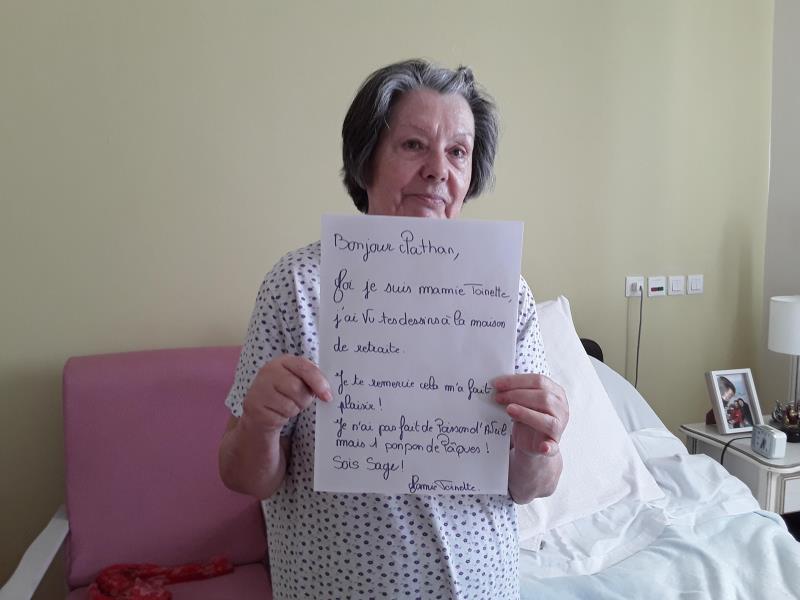 Bonjour Nathan,
Moi je suis mamie Toinette,
j'ai vu tes dessins à la maison
de retraite.
Je te remercie cela m'a fait
plaisir !
Je n'ai pas fait de Poisson d'Avril
mais 1 ponpon de Pâques !
Sois Sage !
Mamie Toinette.